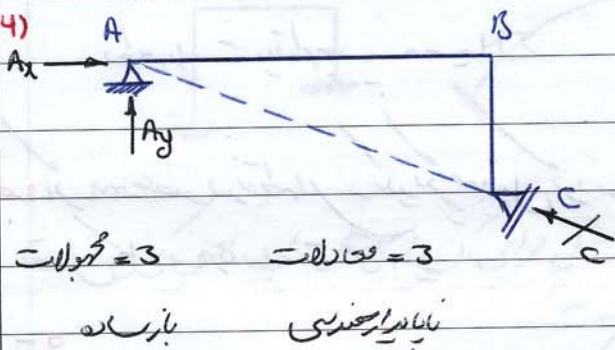 4)
A B
Ax
Ay
C
C
3 = مجهولات 3 = معادلات
ناپایدار هندسی